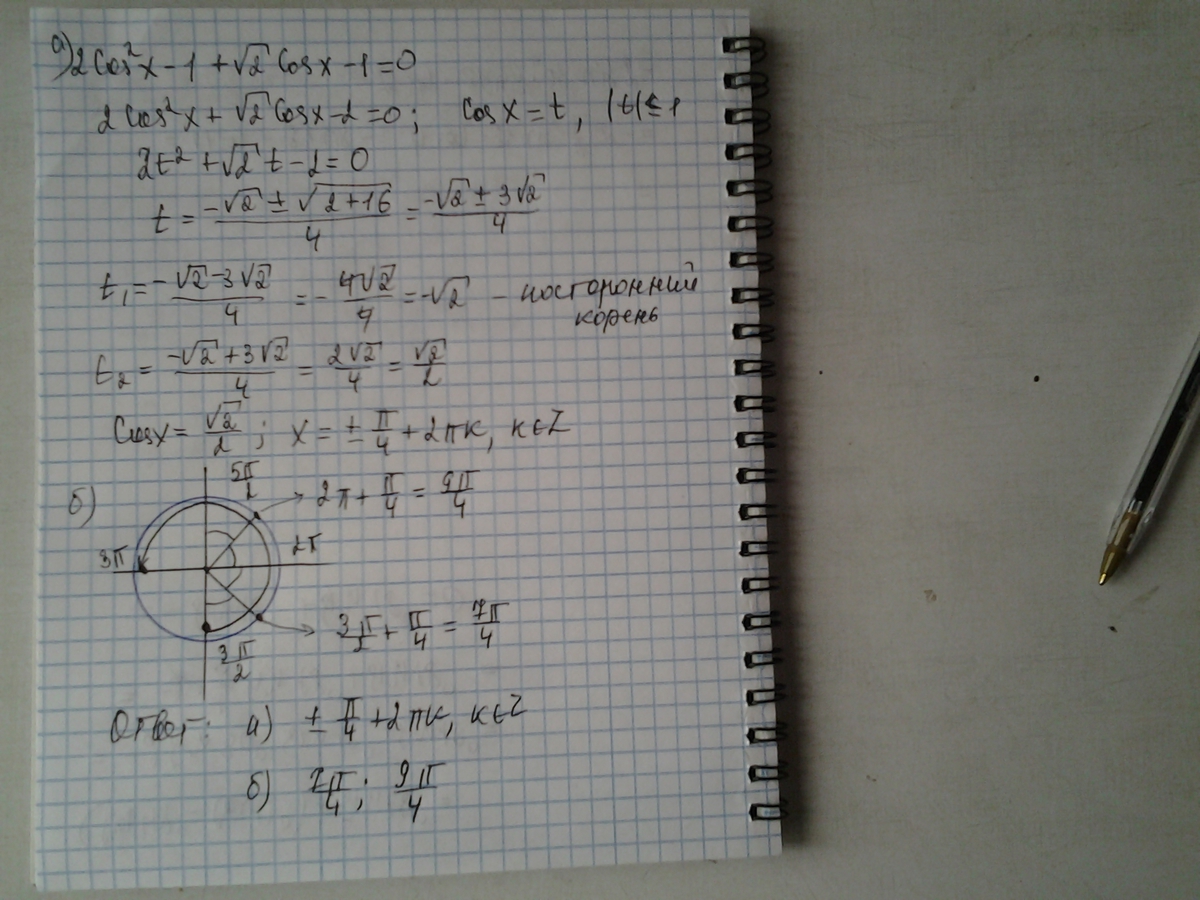 а) 2cos²x - 1 + √2 cosx - 1 = 0
2cos²x + √2 cosx - 2 = 0; cosx = t, |t| ≤ 1
2t² + √2 t - 2 = 0
t = (-√2 ± √(2+16))/4 = (-√2 ± 3√2)/4
t₁ = (-√2 - 3√2)/4 = -4√2/4 = -√2 - посторонний корень
t₂ = (-√2 + 3√2)/4 = 2√2/4 = √2/2
cosx = √2/2; x = ± π/4 + 2πк, к∈Z
б)
5π/2
2π + π/4 = 9π/4
3π
2π
3π/2 + π/4 = 7π/4
3π/2
Ответ: а) ± π/4 + 2πк, к∈Z
б) 7π/4; 9π/4